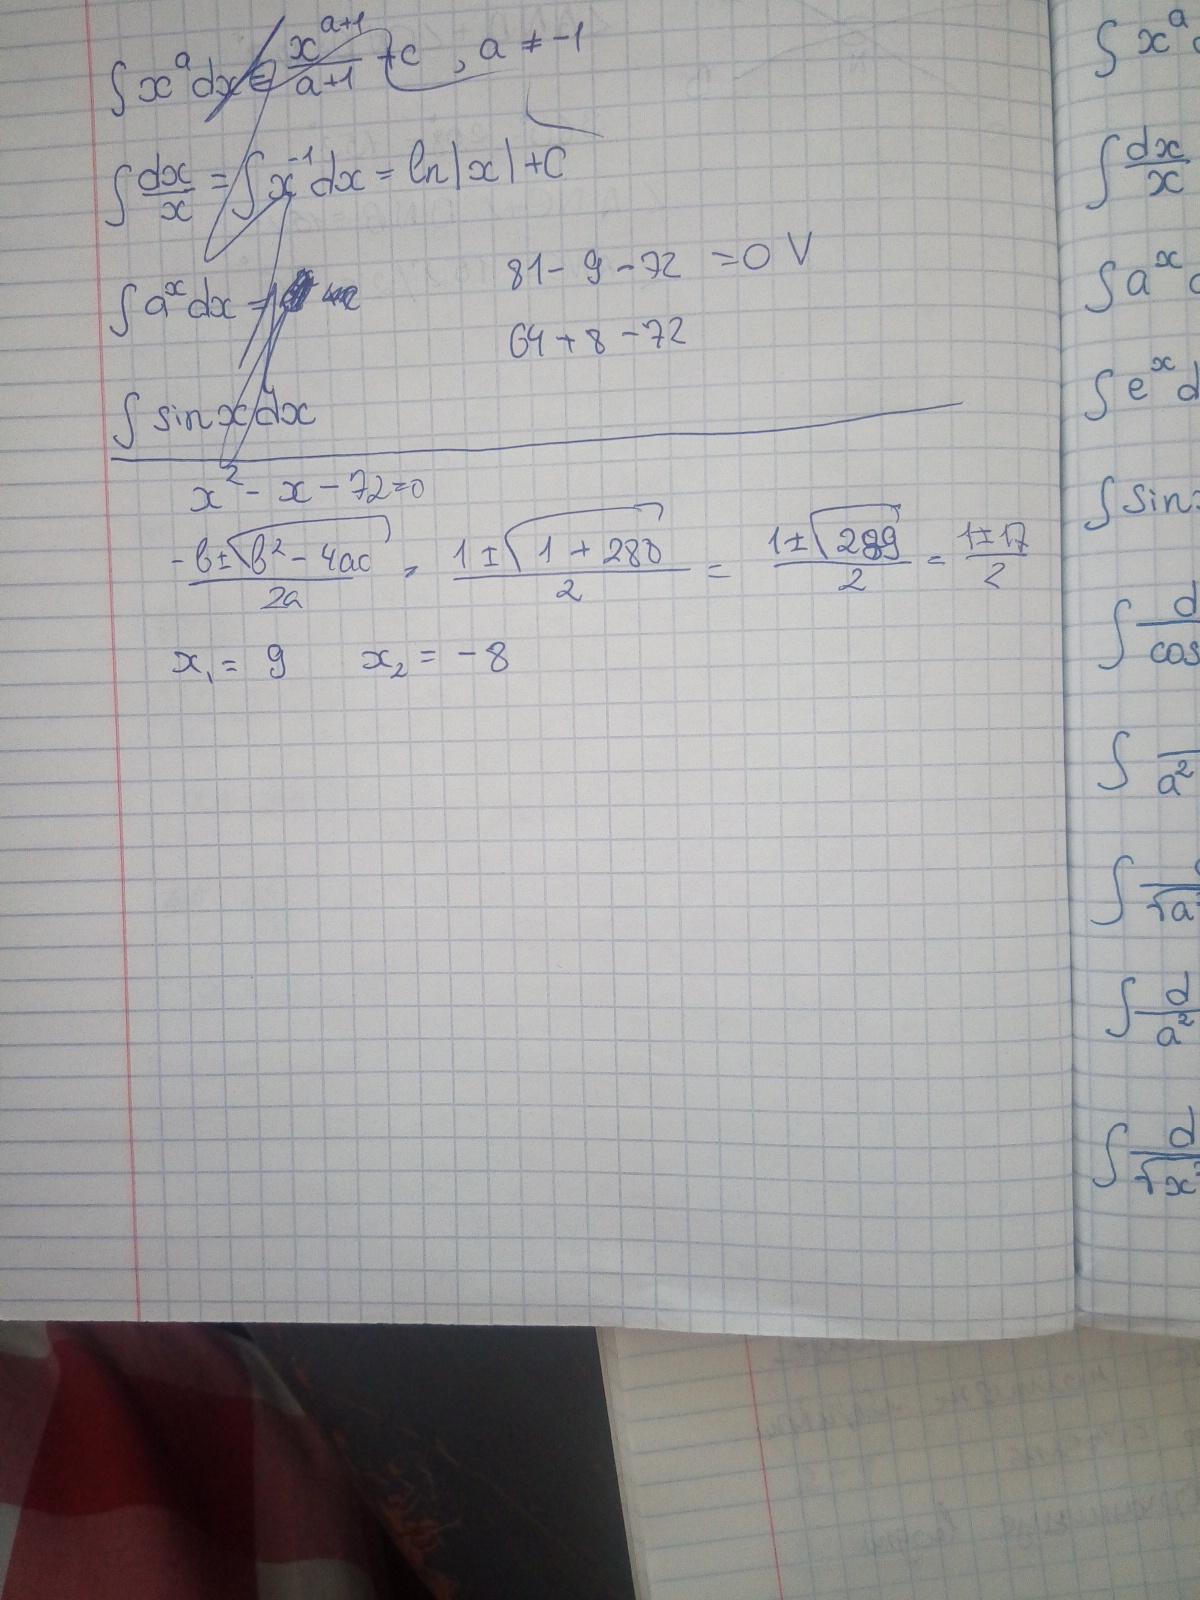 ∫ x^a dx = x^(a+1)/(a+1) + c , a ≠ -1
∫ dx/x = ∫ x^-1 dx = ln|x| + C
∫ a^x dx =
81 - 9 - 72 = 0 V
64 + 8 - 72
∫ sin x dx
x² - x - 72 = 0
(-b ± √(b² - 4ac))/2a = (1 ± √(1 + 288))/2 = (1 ± √289)/2 = (1 ± 17)/2
x₁ = 9 x₂ = -8
∫ x^a
∫ dx/x
∫ a^x
∫ e^x d
∫ sin
∫ d/cos
∫ /a²
∫ /√a²
∫ d/a²
∫ d/√x²